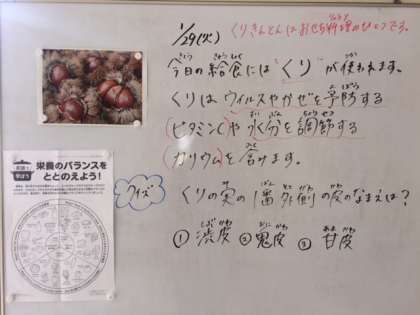 1/29(火)
くりきんとんはおせち料理のひとつです。
今日の給食には"くり"が使われます。
くりはウイルスやかぜを予防する
(ビタミンC)や(水分を調節する
(カリウム)を含みます。
クイズ
くりの実の1番外側の皮のなまえは?
① 渋皮 ② 鬼皮 ③ 甘皮
栄養のバランスを
ととのえよう!